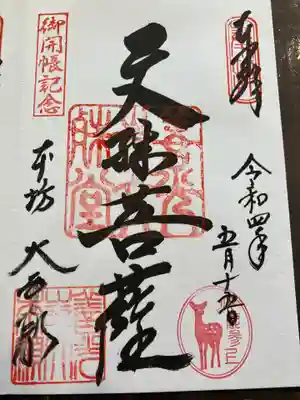 奉拝
令和四年
五月十五日
文殊菩薩
御開帳記念
本坊 大勧進